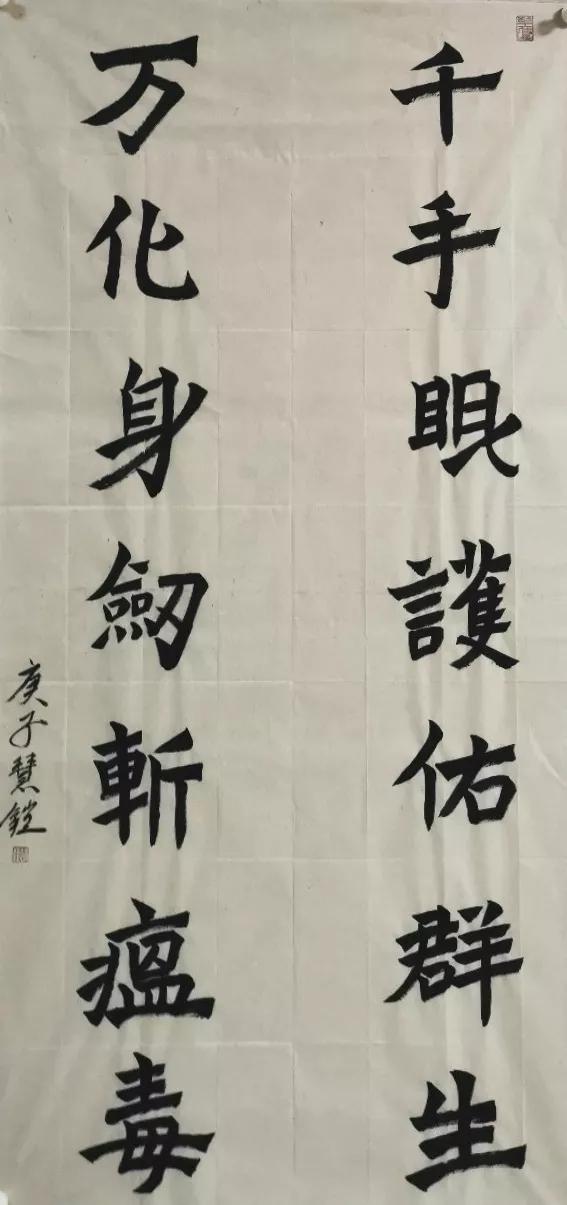 千手眼護佑群生
万化身劒斬瘟毒
庚子慧鏜